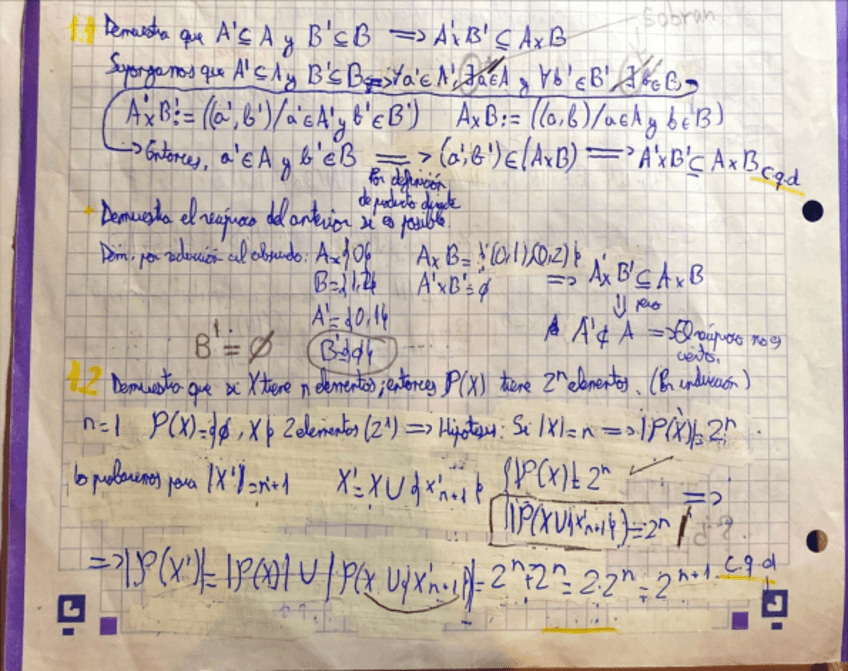 Sobran
1.1 Demuestra que A'⊆A y B'⊆B ⟹ A'xB' ⊆ AxB
Supongamos que A'⊆A y B'⊆B ⟹ ∀a'∈A', ∃a∈A y ∀b'∈B' ∃b∈B
A'xB':= ((a',b')/a'∈A' y b'∈B') AxB:= ((a,b)/a∈A y b∈B)
→ Entonces, a'∈A y b'∈B ⟹ (a',b')∈(AxB) ⟹ A'xB'⊆AxB c.q.d
Por definición
de producto
Demuestra el recíproco del anterior si es posible.
Dem. por reducción al absurdo: A={0} AxB={(0,1),(0,2)}
B={1,2} A'xB'=∅ ⟹ A'xB'⊆AxB
⇓ pero
A'={0,1} A'⊄A ⟹ El recíproco no es
cierto.
B'=∅ B'={∅}
1.2 Demuestra que si X tiene n elementos, entonces P(X) tiene 2ⁿ elementos. (Por inducción)
n=1 P(X)={∅, X} 2 elementos (2¹) ⟹ Hipótesis: Si |X|=n ⟹ |P(X)|=2ⁿ.
lo probaremos para |X'|=n+1 X'=X∪{x'n+1} { |P(X)|=2ⁿ
|P(X∪{x'n+1})=2ⁿ ⟹
⟹ |P(X')|=|P(X)|∪|P(X∪{x'n+1})|=2ⁿ+2ⁿ=2·2ⁿ=2ⁿ⁺¹ c.q.d